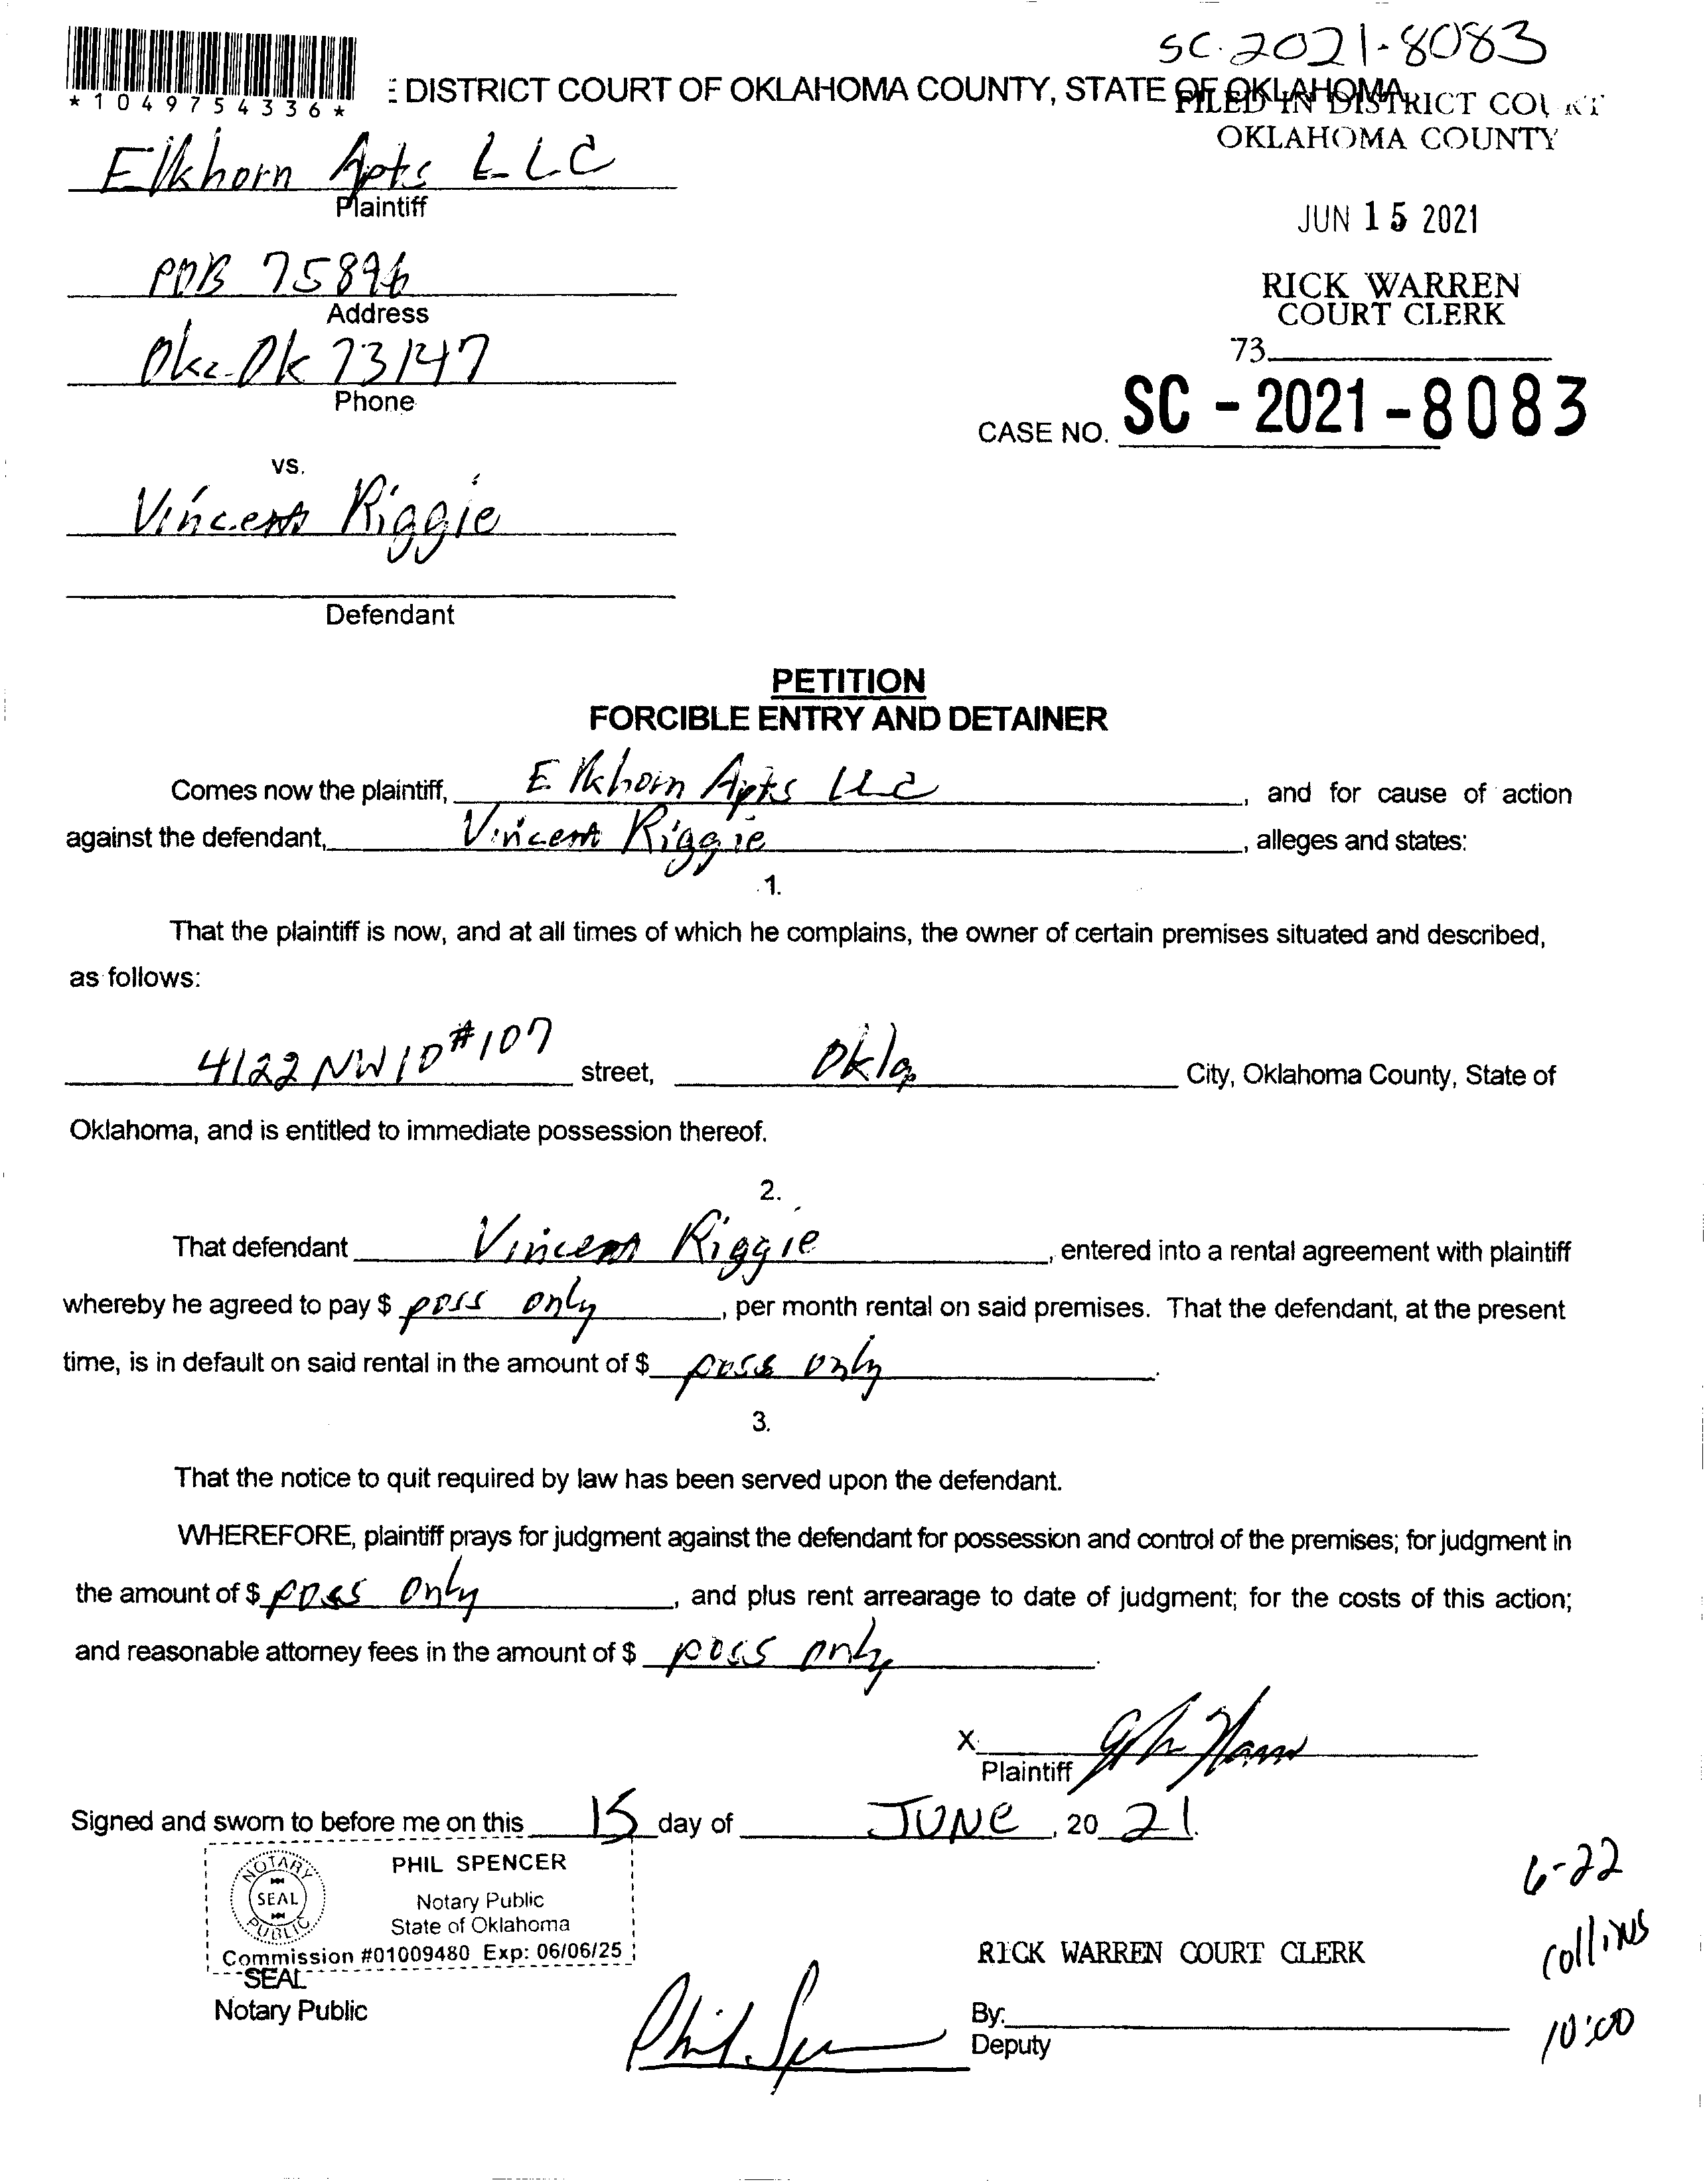 SC-2021-8083
*1049754336*
DISTRICT COURT OF OKLAHOMA COUNTY, STATE OF OKLAHOMA
FILED IN DISTRICT COURT
OKLAHOMA COUNTY
Elkhorn Apts LLC
Plaintiff
JUN 15 2021
POB 75896
Address
RICK WARREN
COURT CLERK
Okc-Ok 73147
Phone
73
CASE NO. SC-2021-8083
vs.
Vincent Riggie
Defendant
PETITION
FORCIBLE ENTRY AND DETAINER
Comes now the plaintiff, Elkhorn Apts LLC, and for cause of action
against the defendant, Vincent Riggie, alleges and states:
1.
That the plaintiff is now, and at all times of which he complains, the owner of certain premises situated and described,
as follows:
4122 NW 10 #107 street, Okla City, Oklahoma County, State of
Oklahoma, and is entitled to immediate possession thereof.
2.
That defendant Vincent Riggie, entered into a rental agreement with plaintiff
whereby he agreed to pay $ poss only, per month rental on said premises. That the defendant, at the present
time, is in default on said rental in the amount of $ poss only.
3.
That the notice to quit required by law has been served upon the defendant.
WHEREFORE, plaintiff prays for judgment against the defendant for possession and control of the premises; for judgment in
the amount of $ poss only, and plus rent arrearage to date of judgment; for the costs of this action;
and reasonable attorney fees in the amount of $ poss only.
X
Plaintiff
Signed and sworn to before me on this 15 day of JUNE, 20 21.
NOTARY
SEAL
PUBLIC
PHIL SPENCER
Notary Public
State of Oklahoma
Commission #01009480 Exp: 06/06/25
SEAL
Notary Public
RICK WARREN COURT CLERK
By:
Deputy
6-22
Collins
10:00